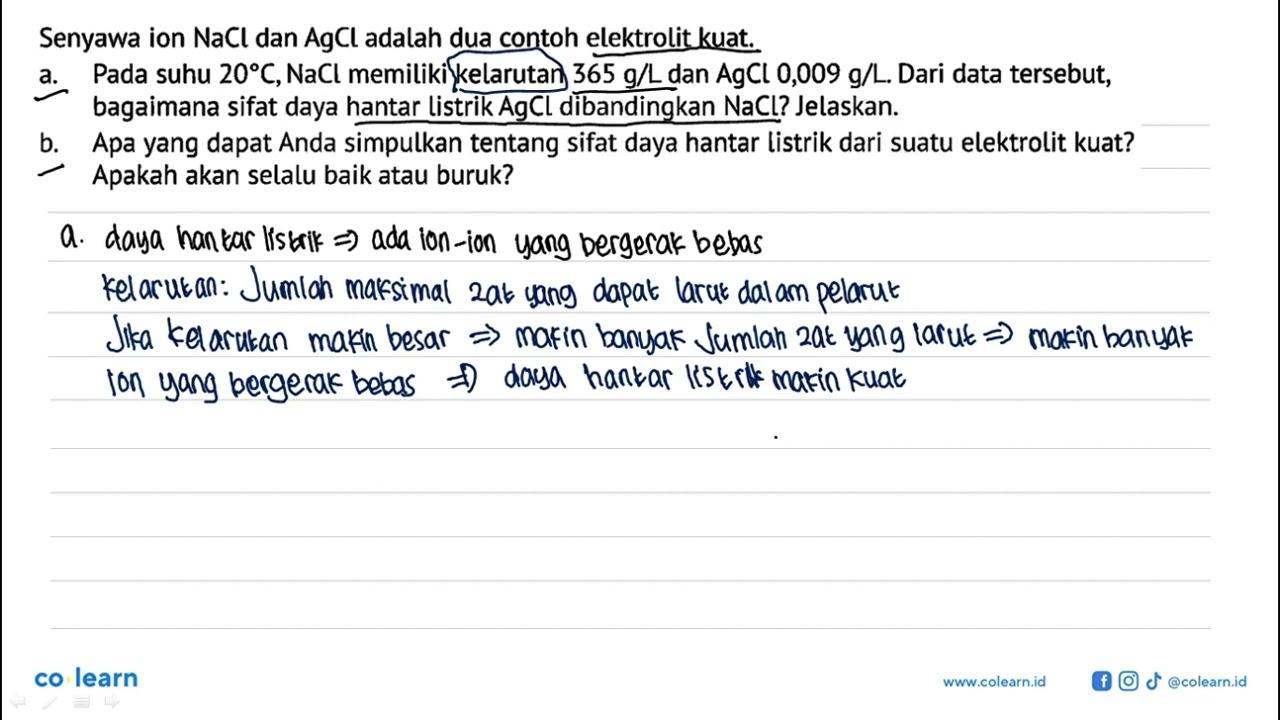 Senyawa ion NaCl dan AgCl adalah dua contoh elektrolit kuat.
a. Pada suhu 20°C, NaCl memiliki kelarutan 365 g/L dan AgCl 0,009 g/L. Dari data tersebut,
bagaimana sifat daya hantar listrik AgCl dibandingkan NaCl? Jelaskan.
b. Apa yang dapat Anda simpulkan tentang sifat daya hantar listrik dari suatu elektrolit kuat?
Apakah akan selalu baik atau buruk?
a. daya hantar listrik => ada ion-ion yang bergerak bebas
kelarutan: Jumlah maksimal zat yang dapat larut dalam pelarut
Jika kelarutan makin besar => makin banyak Jumlah zat yang larut => makin banyak
ion yang bergerak bebas => daya hantar listrik makin kuat
co learn
www.colearn.id @colearn.id